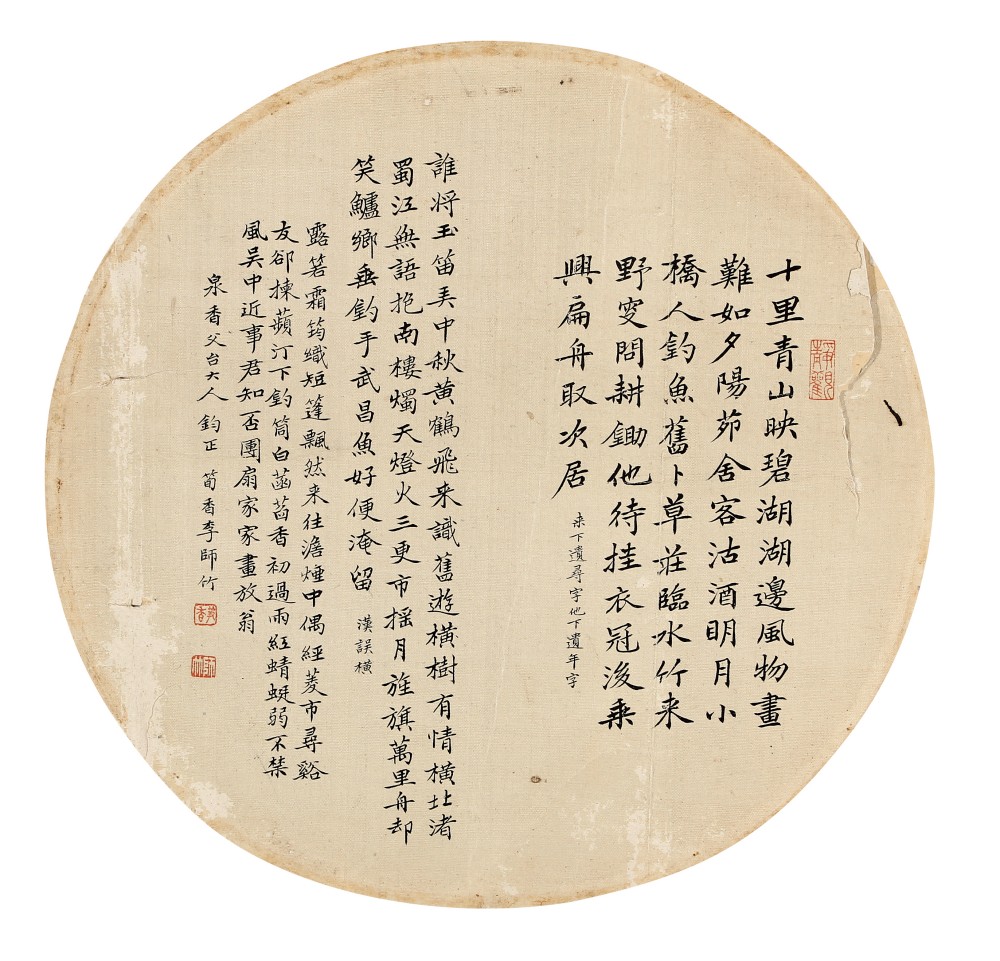 十里青山映碧湖湖邊風物畫
難如夕陽茆舍客沽酒明月小
橋人釣魚舊卜草莊臨水竹来
野叟問耕鋤他待挂衣冠後乗
興扁舟取次居
来下遺尋字他下遺年字
誰将玉笛弄中秋黄鶴飛来識舊遊橫樹有情橫北渚
蜀江無語抱南樓燭天燈火三更市摇月旌旗萬里舟却
笑鱸鄉垂釣手武昌魚好便淹留
漢誤橫
露箬霜筠織短篷飄然来往澹煙中偶經菱市尋谿
友卻揀蘋汀下釣筒白菡萏香初過雨紅蜻蜓弱不禁
風吴中近事君知否團扇家家畫放翁
泉香父台大人鈞正
筍香李師竹